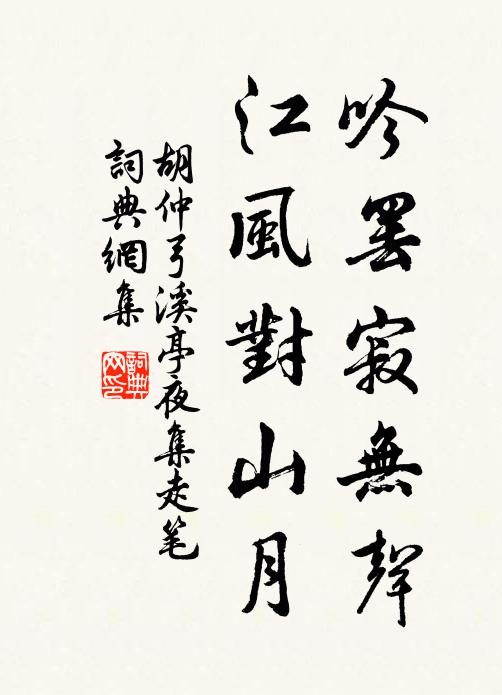 吟罢寂無聲
江風對山月
胡仲弓溪亭夜集走笔
詞典網集
詞典网印